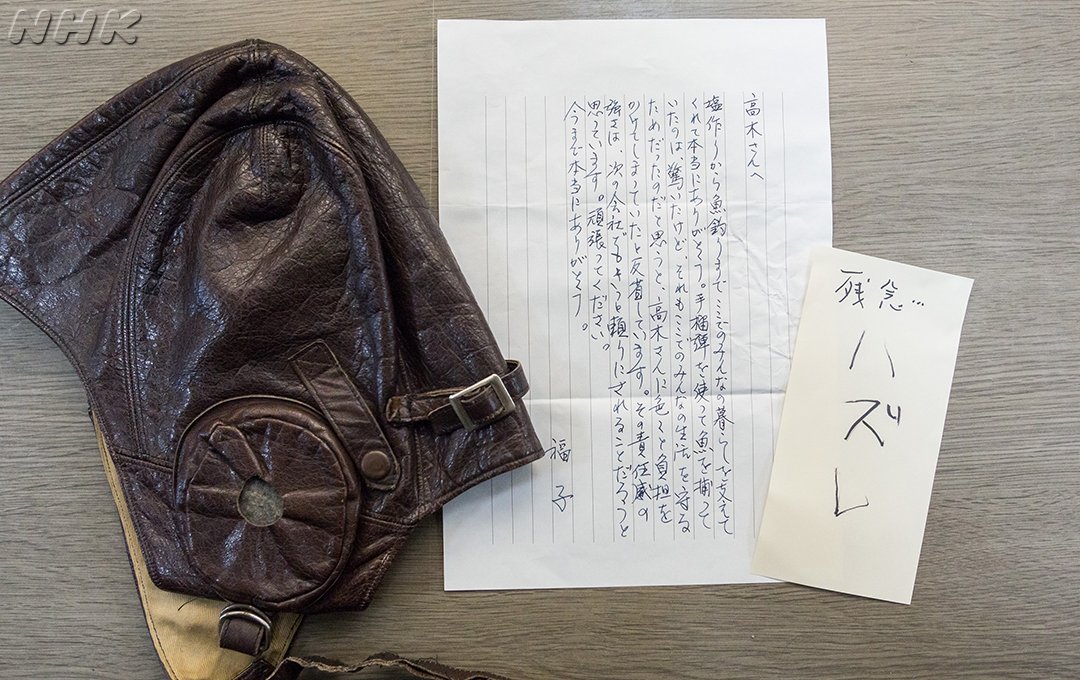 NHK
高木さんへ
塩作りから魚釣りまで、ここでのみんなの暮らしを支えて
くれて本当にありがとう。手榴弾を使って魚を捕って
いたのは、驚いたけど、それもここでのみんなの生活を守る
ためだったのだと思うと、高木さんに色々と負担を
かけてしまっていたと反省しています。その責任感の
強さは、次の会社でもきっと頼りにされることだろうと
思っています。頑張ってください。
今まで本当にありがとう。
福子
残念…
ハズレ